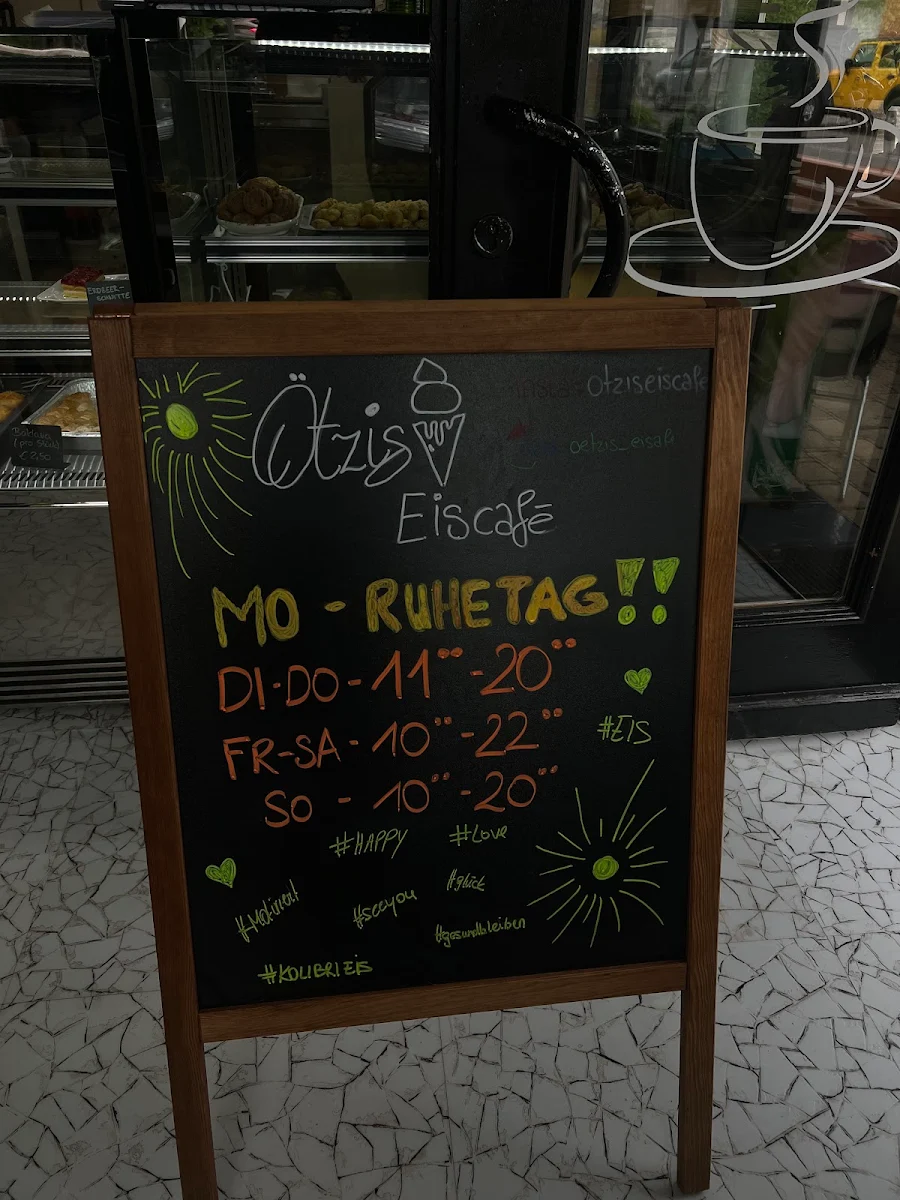 ERDBEER-
SCHNITTE
(pro Stück)
€ 2,50
Ötzis
Eiscafé
otziseiscafe
oetzis_eisafe
MO - RUHETAG!!
DI-DO - 11⁰⁰ - 20⁰⁰
FR-SA - 10⁰⁰ - 22⁰⁰
SO - 10⁰⁰ - 20⁰⁰
#EIS
#HAPPY #Love
#glück
#Motiviert #seeyou
#gesundbleiben
#KOLIBRIEIS